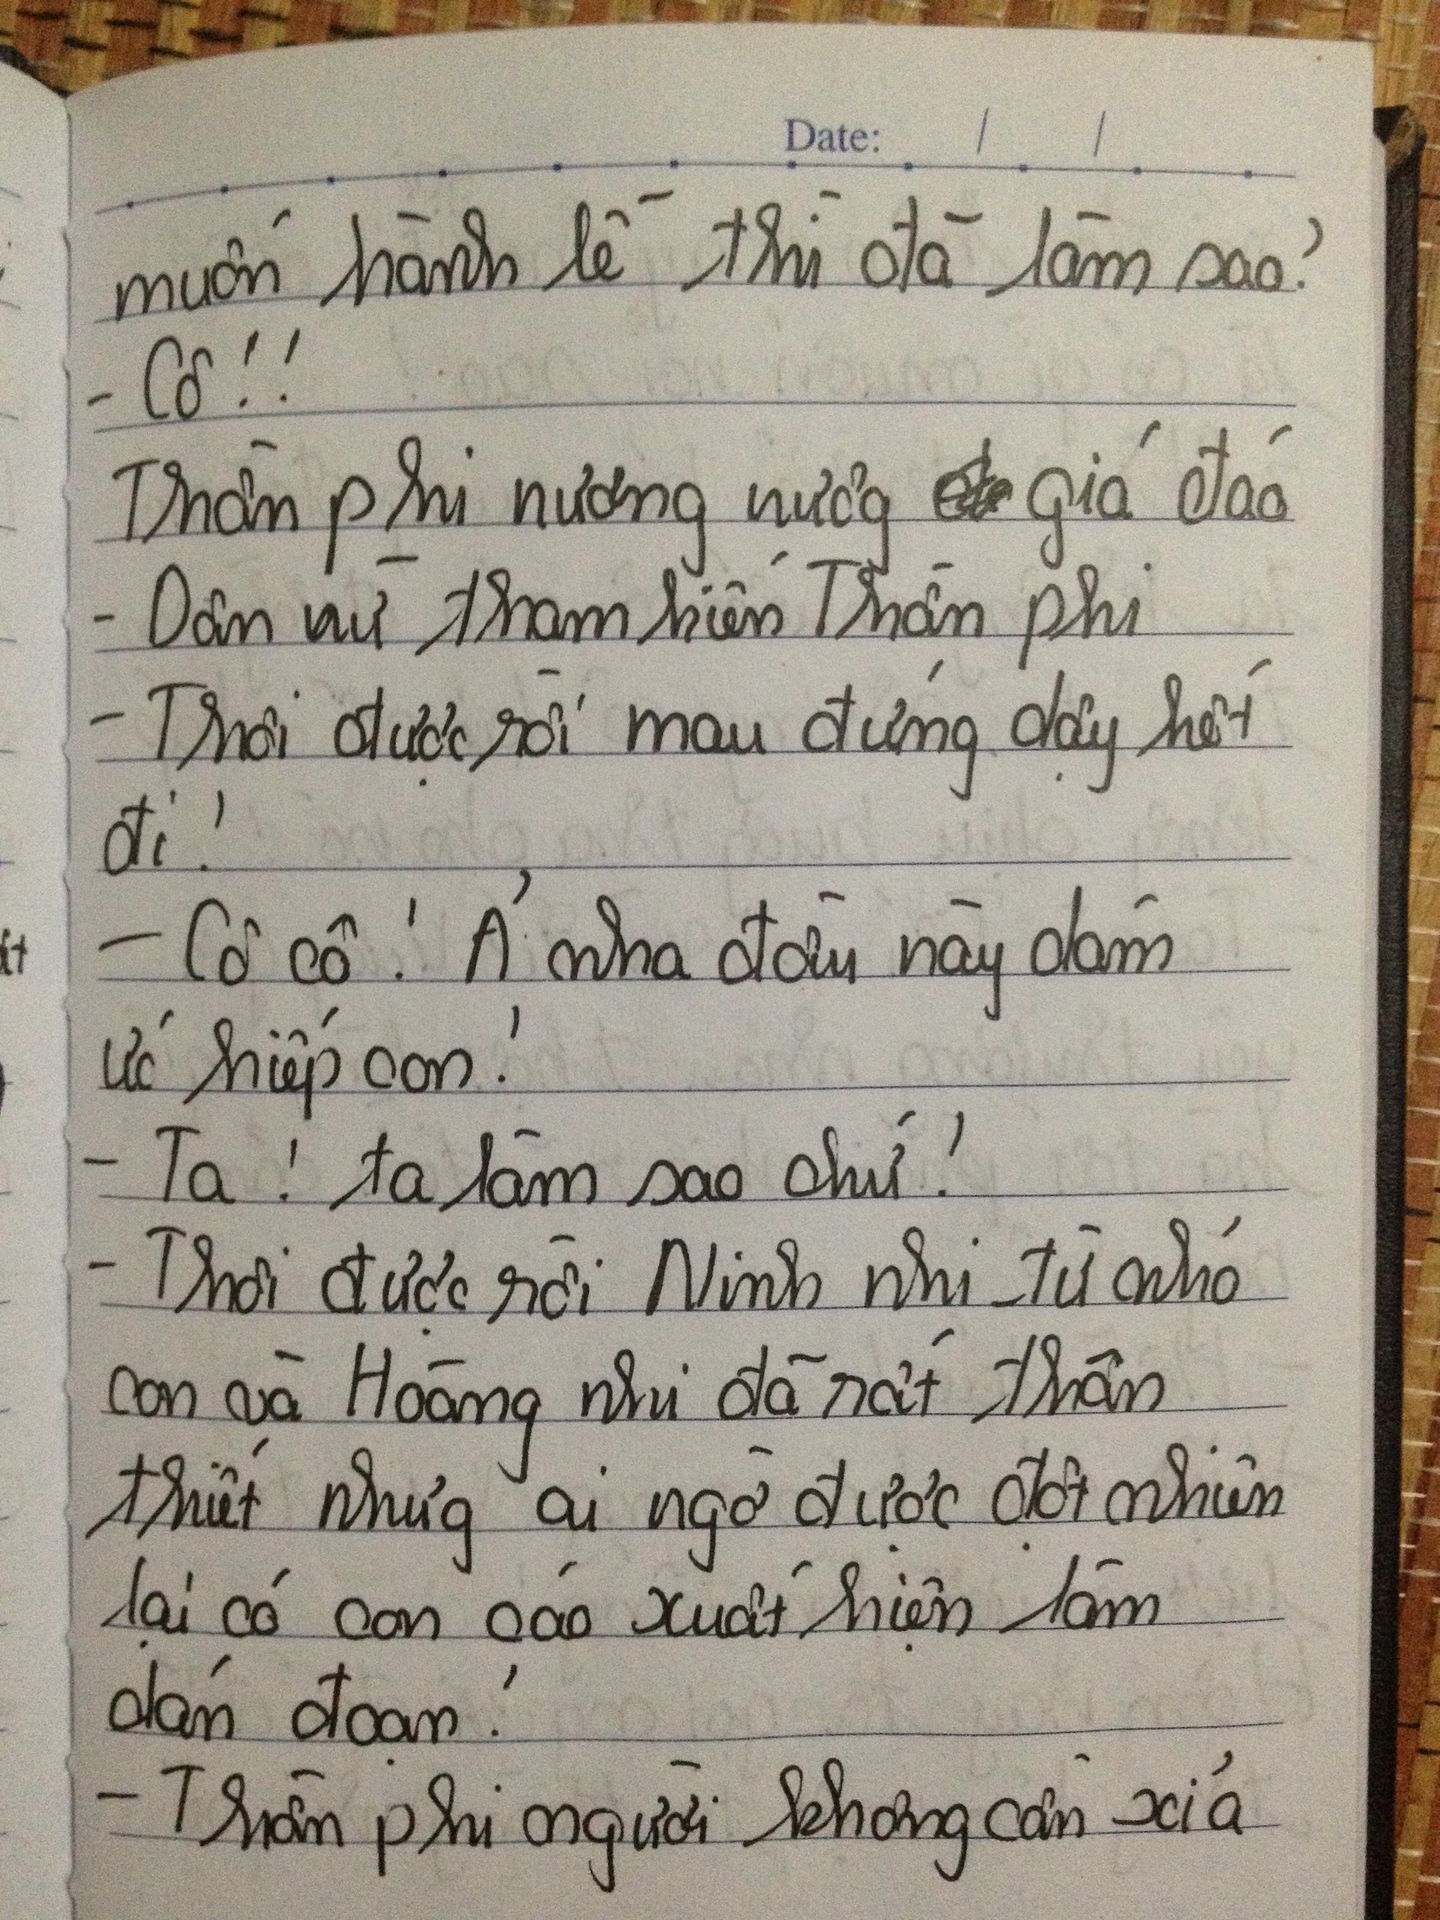 Date: / /
muốn hành lễ thì đã làm sao?
- Cô!!
Thần phi nương nương giá đáo
- Dân nữ tham kiến Thần phi
- Thôi được rồi mau đứng dậy hết
đi!
- Cô cô! Ả nha đầu này dám
ức hiếp con!
- Ta! ta làm sao chứ!
- Thôi được rồi Ninh nhi từ nhỏ
con và Hoàng nhi đã rất thân
thiết nhưg ai ngờ được đột nhiên
lại có con cáo xuất hiện làm
dán đoạn!
- Thần phi người không cần xiá